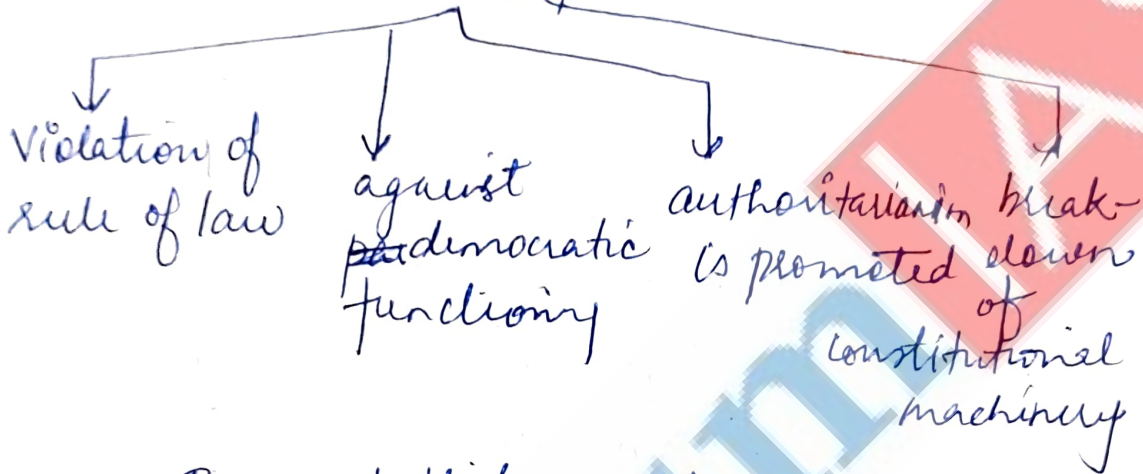 Violation of
rule of law
against
democratic
functioning
authoritarianism
is promoted
break-
down
of
constitutional
machinery
IA
m